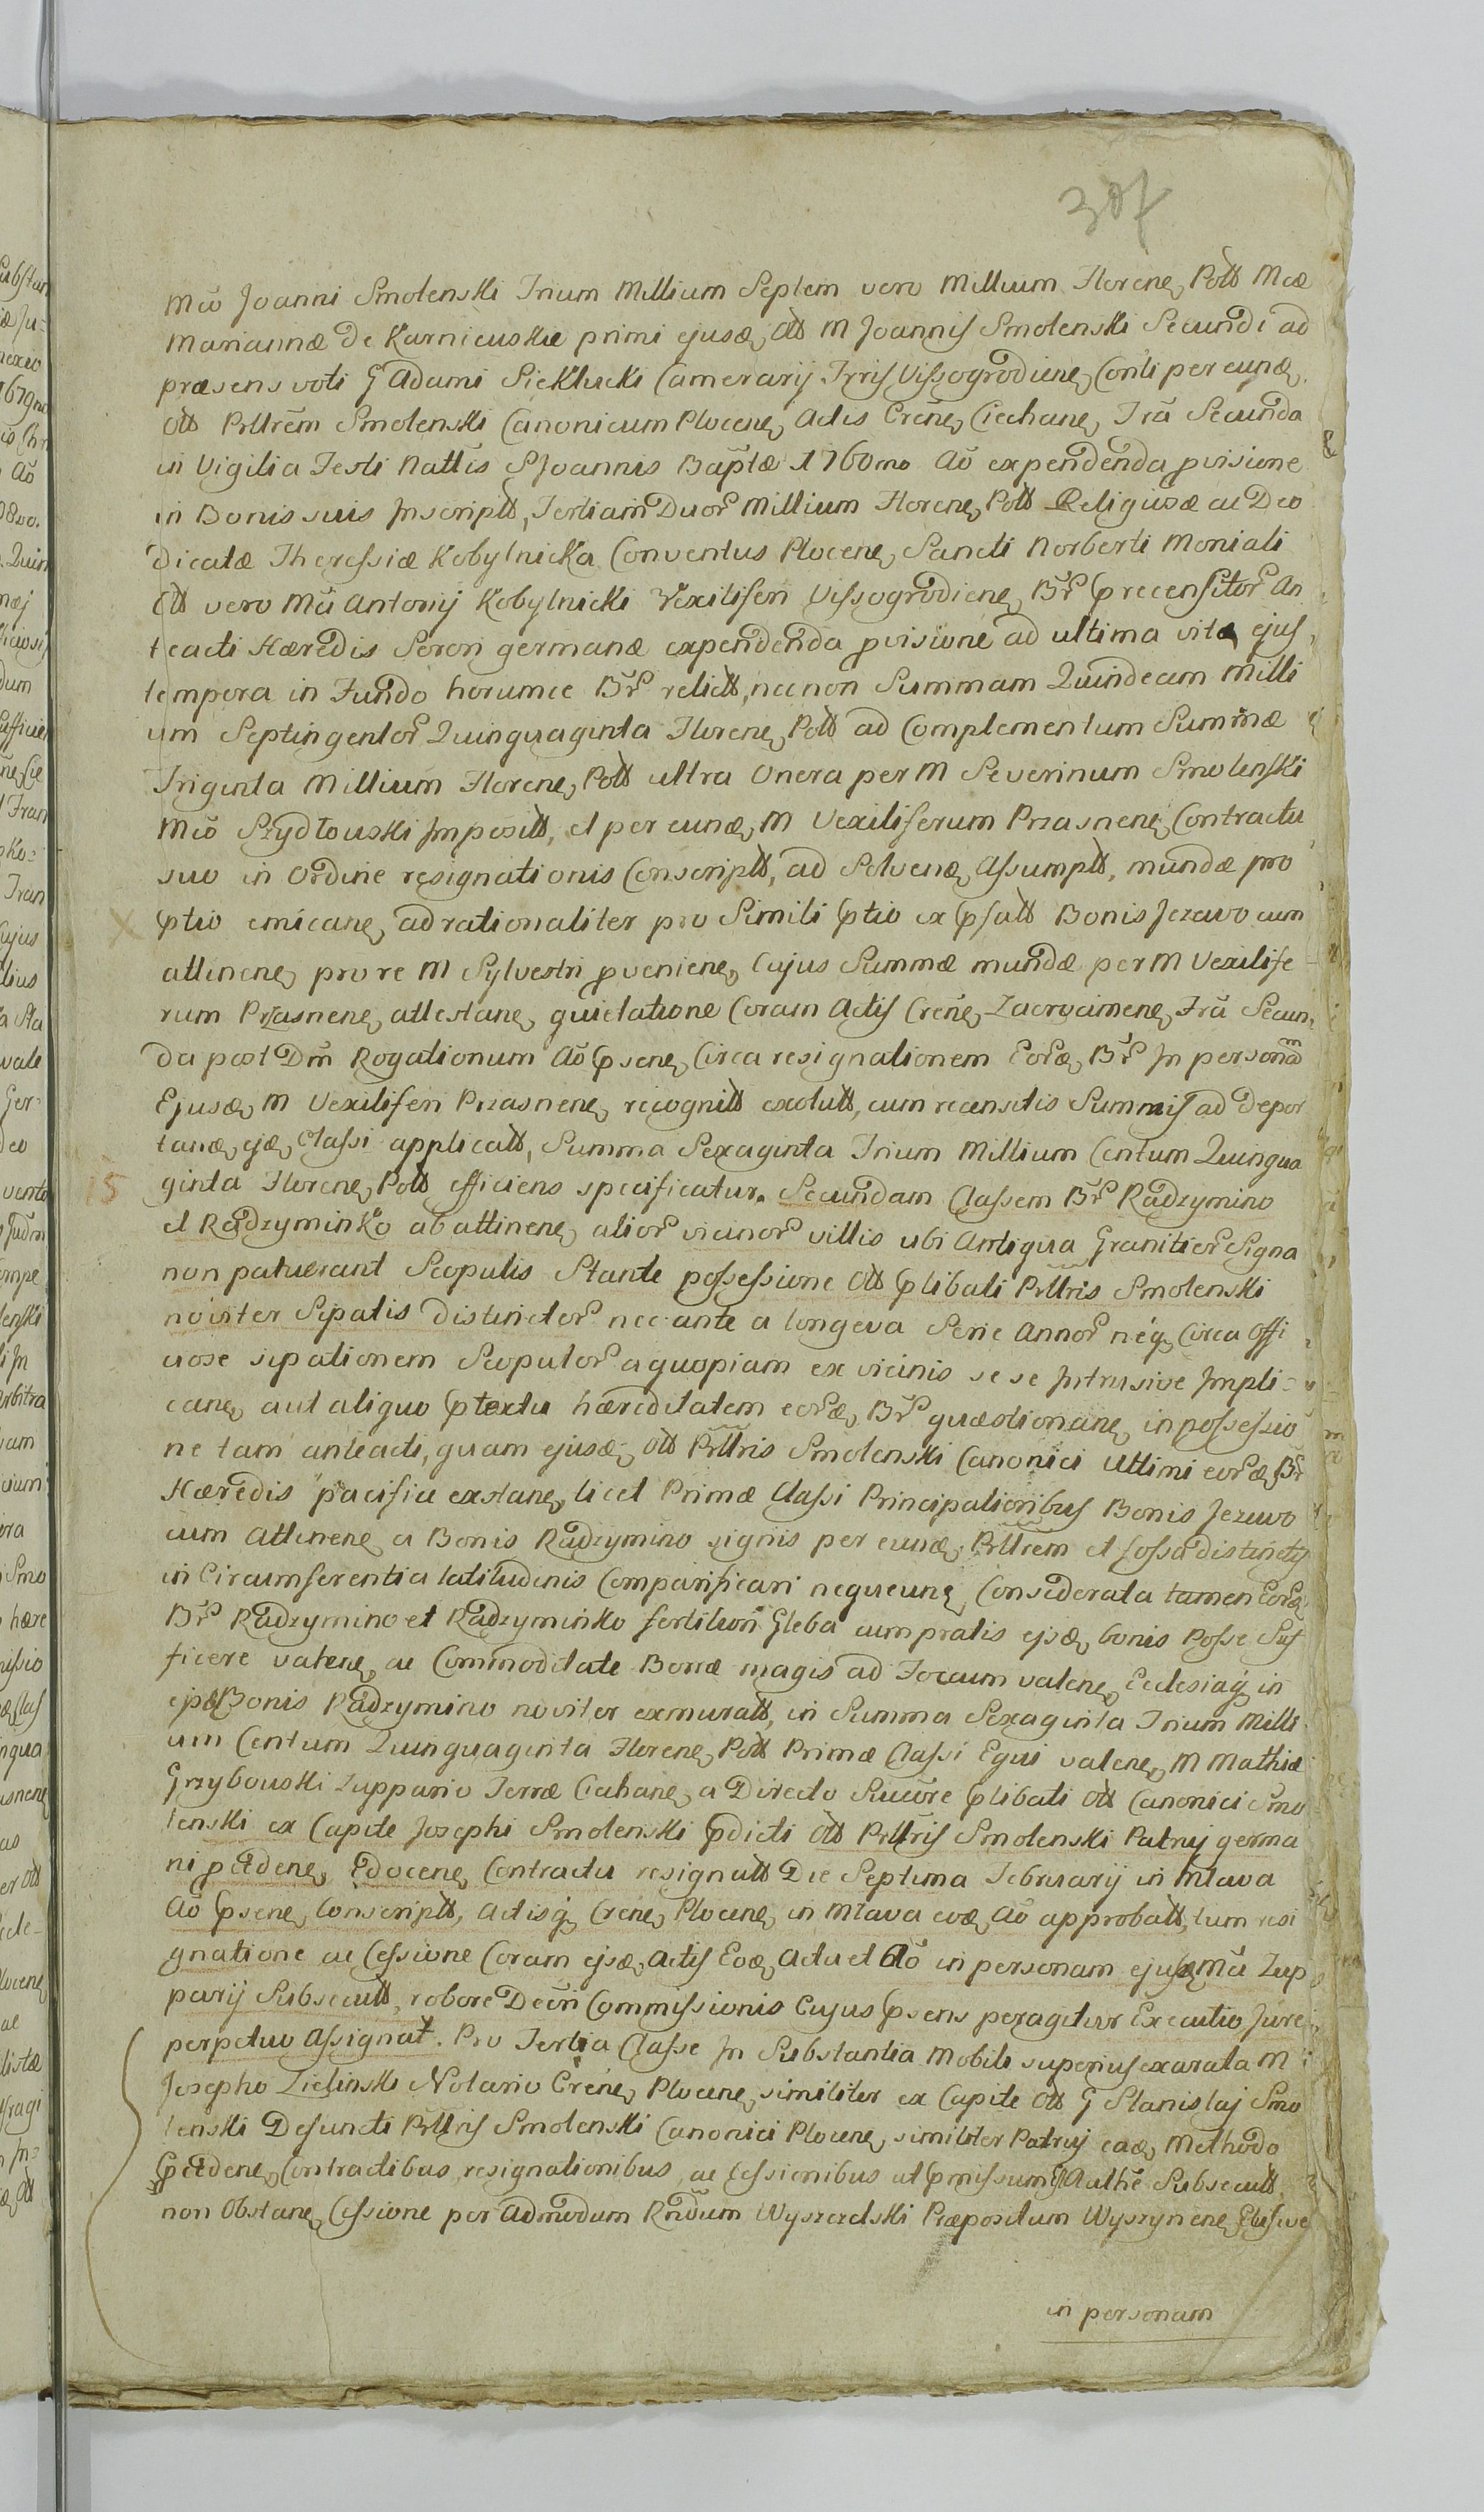 307
Mco Joanni Smolenski Trium Millium Septem vero Millium Florene, Potts Mcæ
Mariannæ de Karnieuskie primi ejusæ, Ott M Joannis Smolenski Secundi ad
præsens voti G Adami Sieklucki Camerarij Trris Vissogrodiene, Conti per eunæ,
Ott Prltrem Smolenski Canonicum Plocene, Actis Crene, Ciechane, Fra Secunda
in Vigilia Festi Nattis S Joannis Baptæ 1760mo Ao expendenda pvisione
in Bonis suis Inscriptt, Tertiam Duor Millium Florene, Pott Religiosæ ac Deo
dicatæ Theressiæ Kobylnicka Conventus Plocene, Sancti Norberti Moniali
Ott vero Mci Antonij Kobylnicki Vexiliferi Vissogrodiene, Br precensitor An
teacti Hæredis Sorori germanæ expendenda pvisione ad ultima vitæ ejus
tempora in Fundo horumce Br relictt, necnon Summam Quindecem Milli
um Septingentor Quinquaginta Florene, Pott ad Complementum Summæ
Triginta Millium Florene, Pott ultra Onera per M Severinum Smolenski
Mco Szydłouski Impositt, et per eunæ, M Vexiliferum Przasnene, Contractu
suo in Ordine resignationis Conscriptt, ad Solvenæ, Assumptt, mundæ pro
ptio emicane, ad rationaliter pro Simili ptio ex psatt Bonis Jezewo cum
attinene, pro re M Sylvestri pveniene, Cujus Summæ mundæ per M Vexilife
rum Przasnene, attestane, quietatione Coram Actis Crene, Zacrocimene, Fra Secun
da post Dm Rogationum Ao psene, Circa resignationem Eoræ, Br In personam
Ejusæ, M Vexiliferi Przasnene, recognitt exolutt, cum recensitis Summis ad depor
tanæ, ejæ, Classi applicatt, Summa Sexaginta Trium Millium Centum Quinqua
15 ginta Florene, Pott efficiens specificatur. Secundam Classem Br Radzymino
et Radzyminko ab attinene, alior vicinor villis ubi Antiqua Granitier Signa
non patuerant Scopulis Stante possessione Ott plibati Prltris Smolenski
noviter Sipatis distinctor nec ante a longeva Serie Annor neq, Circa Offi
ciose sipationem Scopulor a quopiam ex vicinis se se Intrusive Impli=
cane, aut aliquo ptextu hæreditatem eoræ, Br quæstionane, in possessio
ne tam anteacti, quam ejusæ, Ott Prltris Smolenski Canonici Ultimi eoræ, Br
Hæredis pacifice exstane, licet Primæ Classi Principalioribus Bonis Jezewo
cum Attinene, a Bonis Radzymino signis per eunæ, Prltrem et fossa distinctis
in Circumferentia latitudinis Comparificari nequeune, Considerata tamen Eoræ,
Br Radzymino et Radzyminko fertiliori Gleba cum pratis ejsæ, bonis Posse Suf
ficere valene, ac Commoditate Borræ magis ad Focum valene, Ecclesiaq, in
ejsæ Bonis Radzymino noviter exmuratt, in Summa Sexaginta Trium Milli
um Centum Quinquaginta Florene, Pott Primæ Classi Equi valene, M Mathiæ
Grzybouski Zuppario Terræ Ciechane, a Directo Sucore plibati Ott Canonici Smo
lenski ex Capite Josephi Smolenski pdicti Ott Prltris Smolenski Patruj germa
ni pcedene, Edocene, Contractu resignatt Die Septima Februarij in Mlava
Ao psene, Conscriptt, Actisq, Crene, Plocene, in Mlava eoæ, Ao approbatt, tum resi
gnatione ac Cessione Coram ejsæ, Actis Eoæ, Actu et Ao in personam ejusæ, Mci Zup
parij Subsecutt, robore Decri Commissionis Cujus psens peragitur Executio Jure
perpetuo Assignat. Pro Tertia Classe In Substantia Mobili superius exarata M
Josepho Zielinski Notario Crene, Plocene, similiter ex Capite Ott G Stanislaj Smo
lenski Defuncti Prltris Smolenski Canonici Plocene, similiter Patruj eaæ, Methodo
pcedene, Contractibus resignationibus, ac Cessionibus ut pmissum Authe Subsecutt
non Obstane, Cessione per Admodum Rndum Wyszczelski Præpositum Wyszynene,
in personam